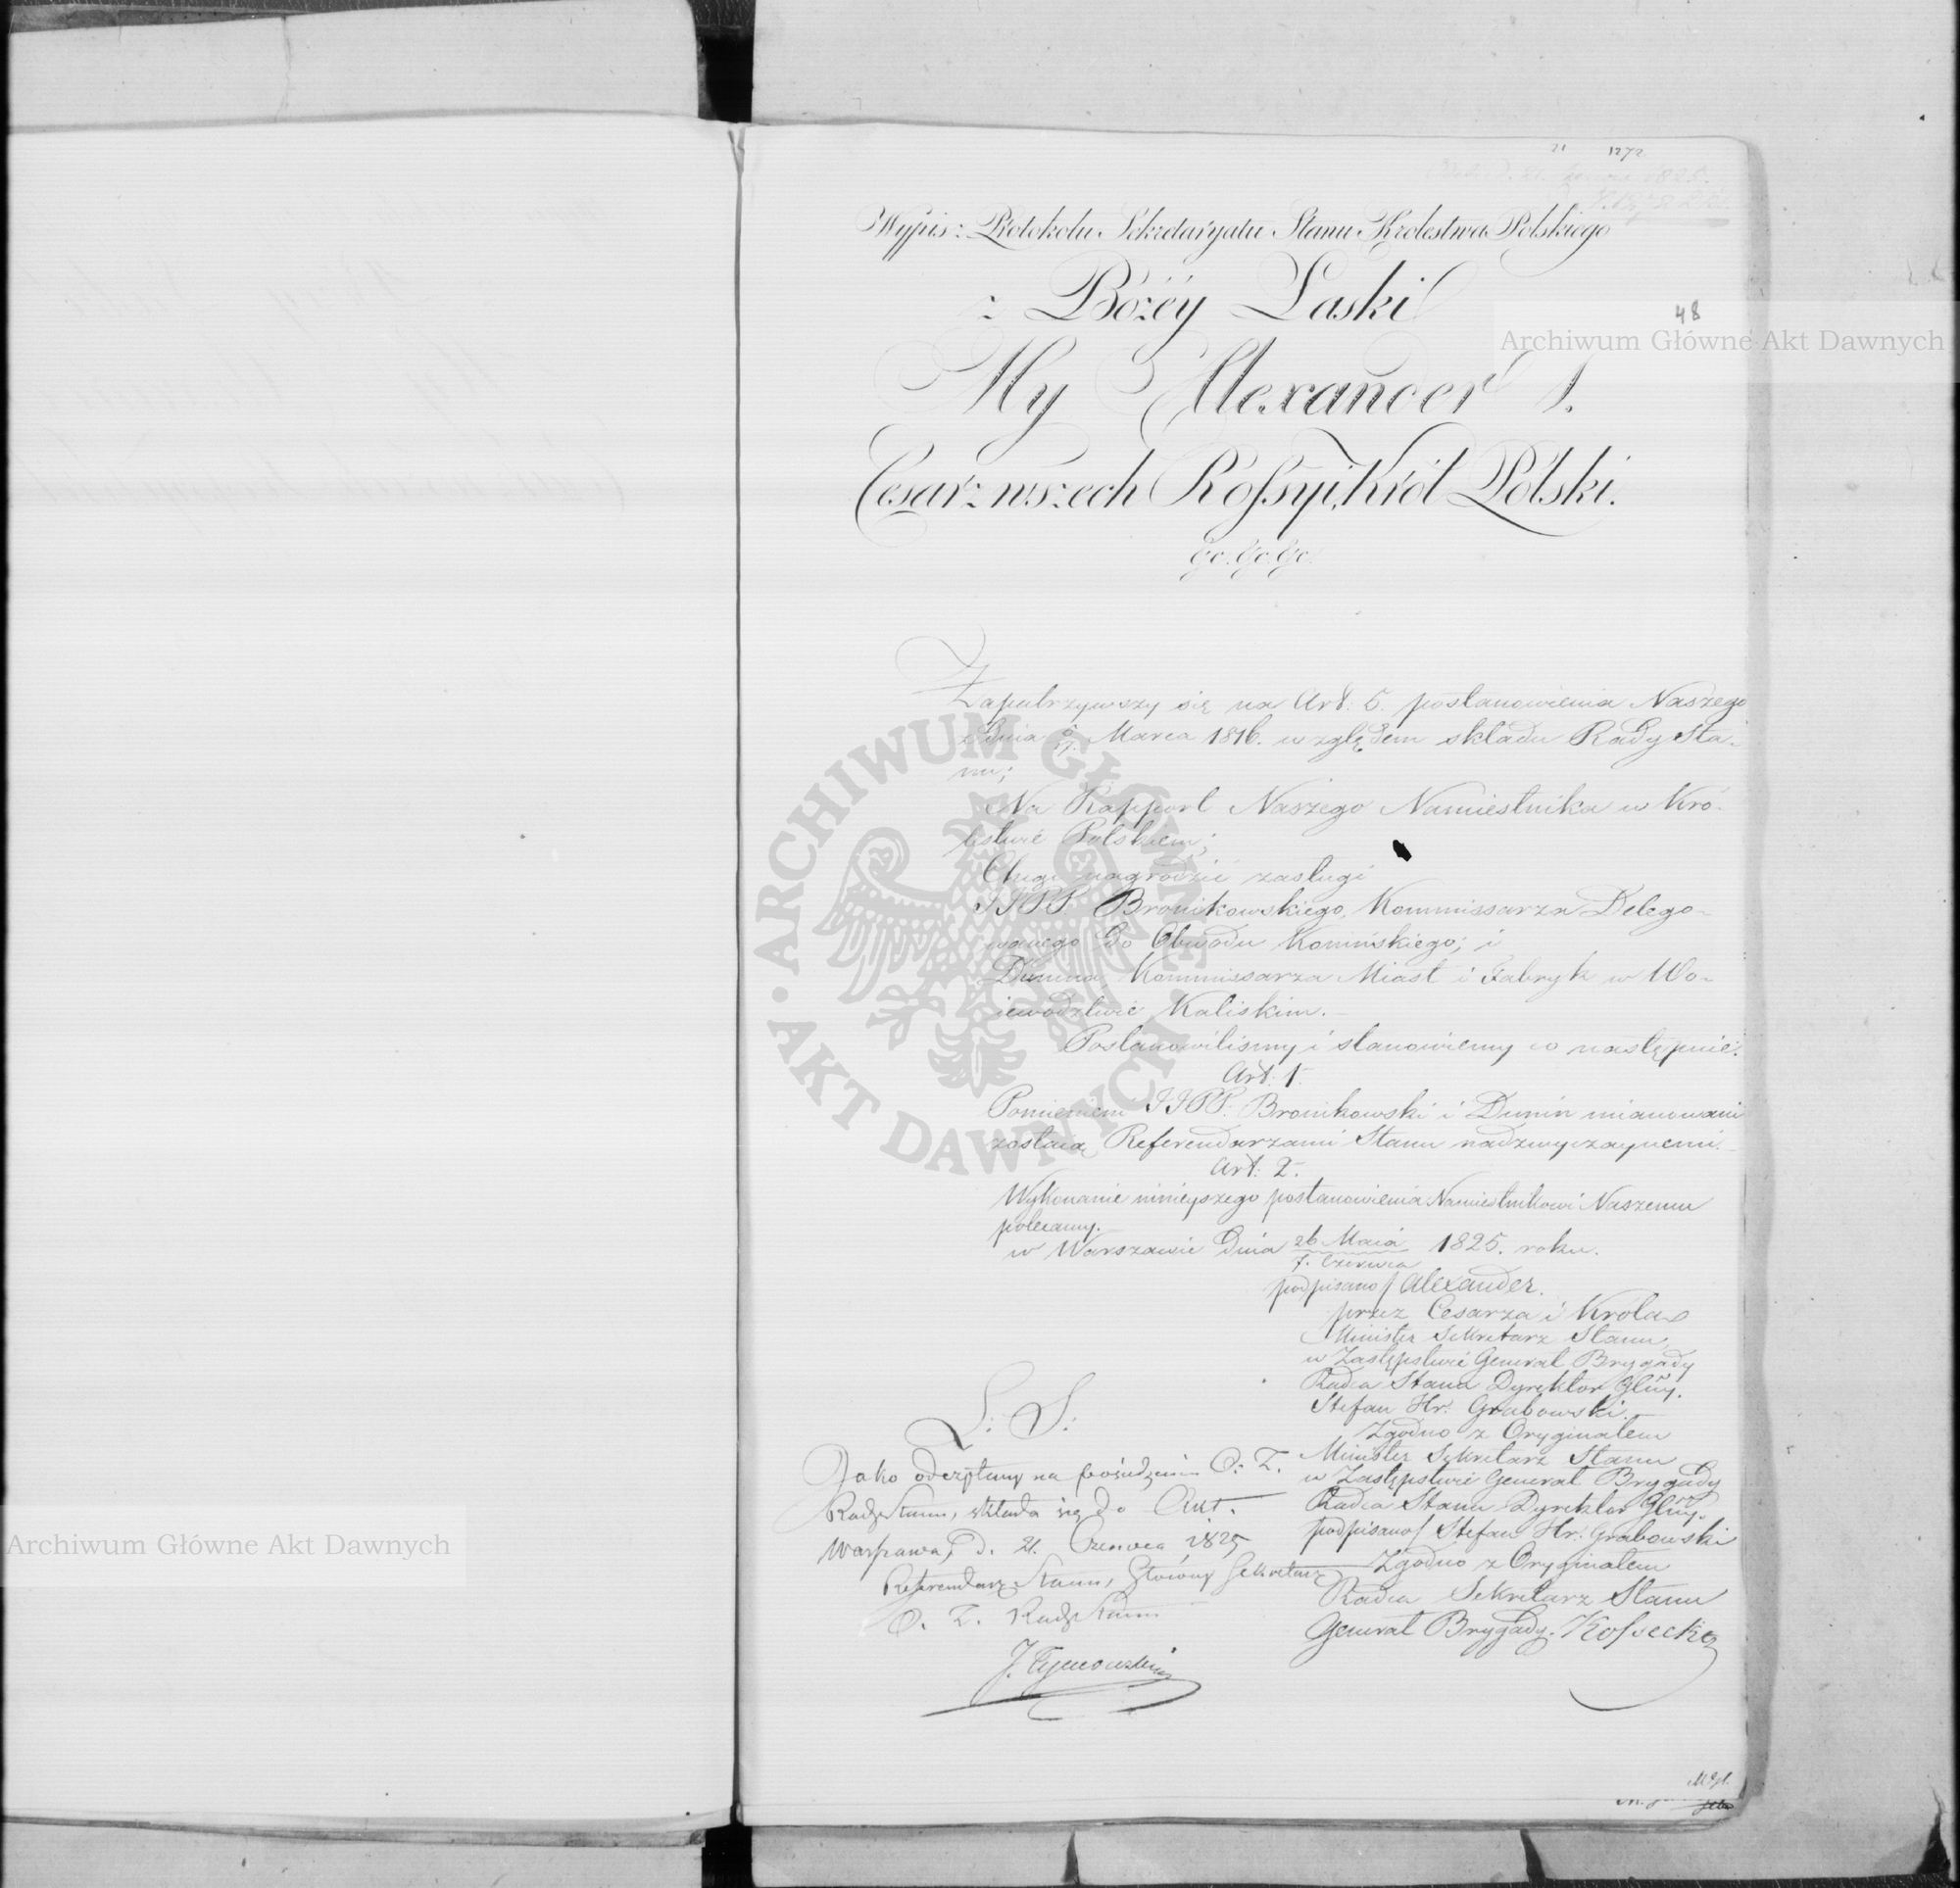 21 1272
Wypis z Protokołu Sekretaryatu Stanu Krolestwa Polskiego
z Bożéy Łaski
48
Archiwum Główne Akt Dawnych
My Alexander I.
Cesarz wszech Rossyi, Król Polski.
&c. &c. &c.
Zapatrzywszy się na Art: 5. postanowienia Naszego
z dnia Marca 1816. względem składu Rady Sta-
nu;
Na Rapport Naszego Namiestnika w Kró-
lestwie Polskiem;
Chcąc nagrodzić zasługi
JJPP. Bronikowskiego, Kommissarza Delego-
wanego do Obwodu Konińskiego; i
Dunina, Kommissarza Miast i Fabryk w Wo-
iewództwie Kaliskim.
Postanowiliśmy i stanowiemy co następuie:
Art: 1.
Pomienieni JJPP. Bronikowski i Dunin mianowani
zostaią Referendarzami Stanu nadzwyczaynemi.
Art: 2.
Wykonanie ninieyszego postanowienia Namiestnikowi Naszemu
polecamy.
w Warszawie dnia 26 Maia / 7. Czerwca 1825. roku.
podpisano / Alexander.
przez Cesarza i Króla
Minister Sekretarz Stanu,
w Zastępstwie Generał Brygady
Radca Stanu Dyrektor Głny.
Stefan Hr: Grabowski.
Zgodno z Oryginałem
Minister Sekretarz Stanu
w Zastępstwie Generał Brygady
Radca Stanu Dyrektor Głny.
podpisano / Stefan Hr: Grabowski
Zgodno z Oryginałem
Radca Sekretarz Stanu
Generał Brygady. Kossecki
L: S:
Jako odczytany na posiedzeniu O: Z.
Rady Stanu, składa się do Akt.
Warszawa, d. 21. Czerwca 1825
Referendarz Stanu, Główny Sekretarz
O. Z. Rady Stanu
J. Tymowski
Archiwum Główne Akt Dawnych
ARCHIWUM GŁÓWNE AKT DAWNYCH